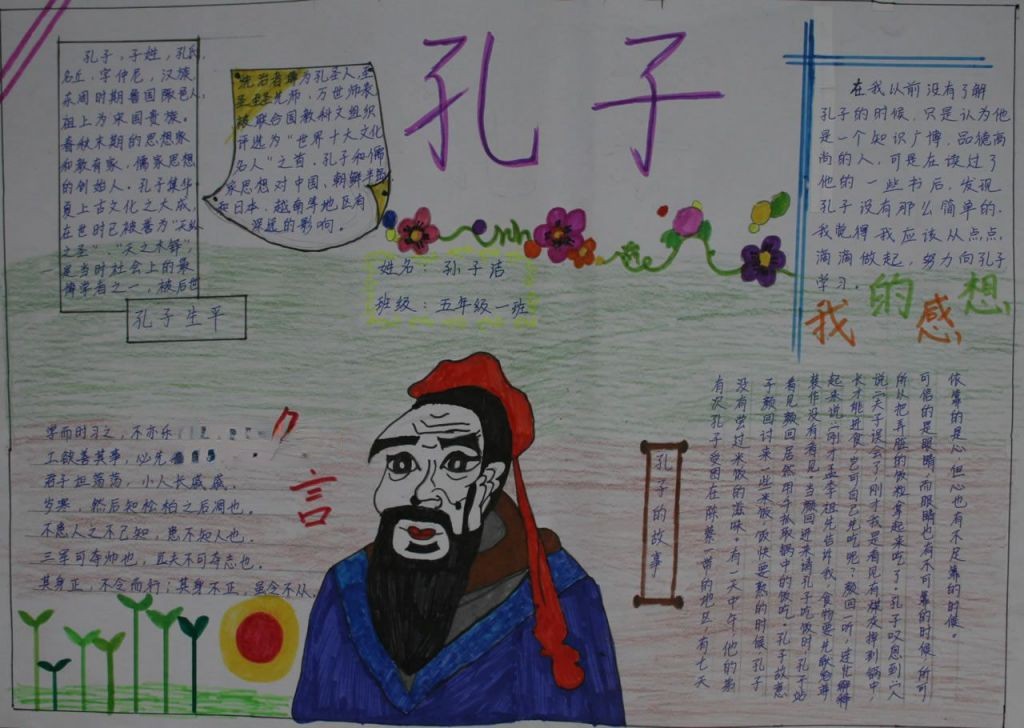 孔子
孔子，子姓，孔氏，
名丘，字仲尼，汉族，
东周时期鲁国陬邑人，
祖上为宋国贵族。
春秋末期的思想家
和教育家，儒家思想
的创始人。孔子集华
夏上古文化之大成，
在世时已被誉为“天纵
之圣”、“天之木铎”
是当时社会上的最
博学者之一，被后世
孔子生平
统治者尊为孔圣人、至
圣先师、万世师表
被联合国教科文组织
评选为“世界十大文化
名人”之首。孔子和儒
家思想对中国、朝鲜半岛
和日本、越南等地区有
深远的影响。
姓名：孙子洁
班级：五年级一班
在我以前没有了解
孔子的时候，只是认为他
是一个知识广博，品德高
尚的人，可是在读过了
他的一些书后，发现
孔子没有那么简单的.
我觉得我应该从点点，
滴滴做起，努力向孔子
学习。
我的感想
学而时习之，不亦乐
工欲善其事，必先
君子坦荡荡，小人长戚戚。
岁寒，然后知松柏之后凋也。
不患人之不己知，患不知人也。
三军可夺帅也，匹夫不可夺志也。
其身正，不令而行；其身不正，虽令不从。
言
孔子的故事
有次孔子受困在陈蔡一带的地区，有七天
没有尝过米饭的滋味。有一天中午，他的弟
子颜回讨来一些米饭。饭快要熟的时候，孔子
看见颜回居然用手抓取锅中的饭吃。孔子故意
装作没有看见。当颜回进来请孔子吃饭时，孔子站
起来说：“刚才孟李祖先告诉我，食物要先献给尊
长才能进食，岂可自己先吃呢？”颜回一听，连忙解释
说：“夫子误会了，刚才我是看见有煤灰掉到锅中，
所以把弄脏的饭粒拿起来吃了。”孔子叹息到：“人
可信的是眼睛，而眼睛也有不可靠的时候，所可
依靠的是心，但心也有不足靠的时候。